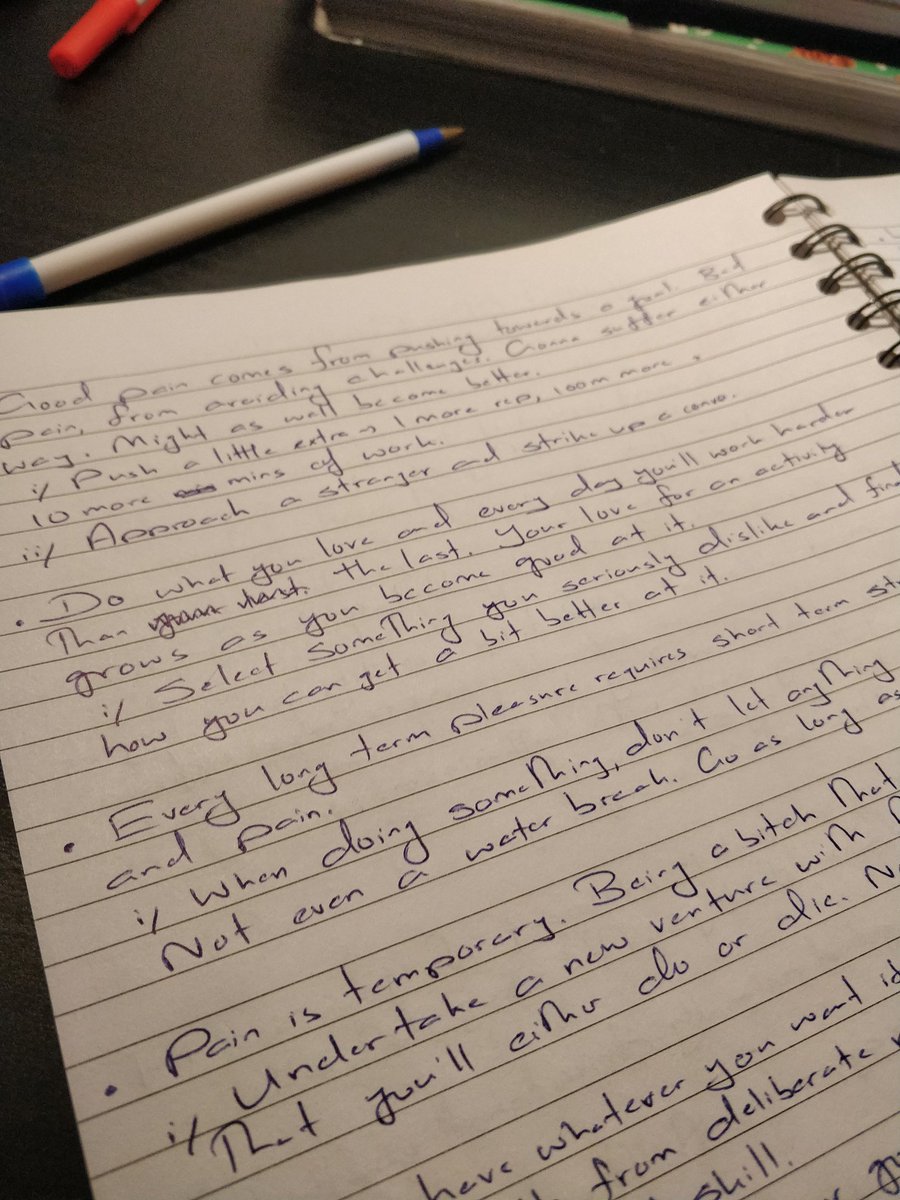 Good pain comes from pushing towards a goal. Bad
pain, from avoiding challenges. Gonna suffer either
way. Might as well become better.
i/ Push a little extra → 1 more rep, 100m more,
10 more mins of work.
ii/ Approach a stranger and strike up a convo.
• Do what you love and every day you'll work harder
Than the last. Your love for an activity
grows as you become good at it.
i/ Select something you seriously dislike and find
how you can get a bit better at it.
• Every long term pleasure requires short term
and pain.
i/ When doing something, don't let anything
Not even a water break. Go as long as
• Pain is temporary. Being a bitch that
i/ Undertake a new venture with
That you'll either do or die.
have whatever you want
from deliberate
skill.